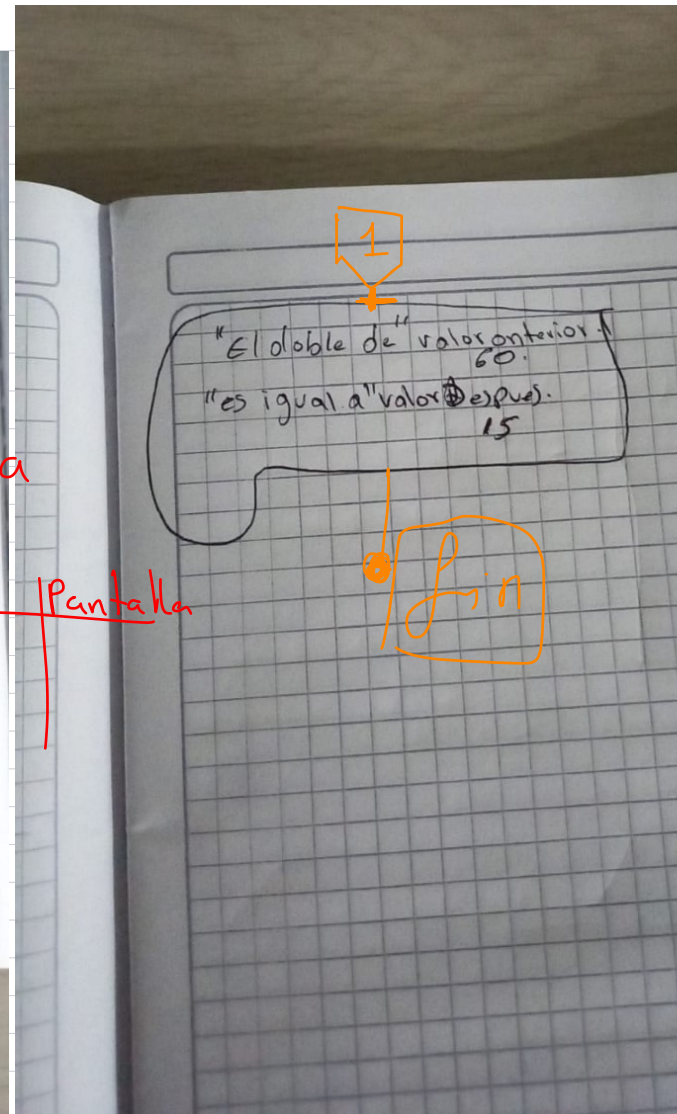 1
"El doble de" valor anterior.
60.
"es igual a" valor Despues.
15
a
fin
Pantalla